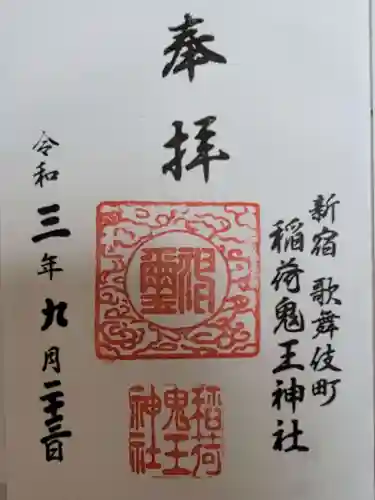 奉拝
新宿 歌舞伎町
稲荷鬼王神社
稲荷
鬼王
神社
令和三年九月二十三日